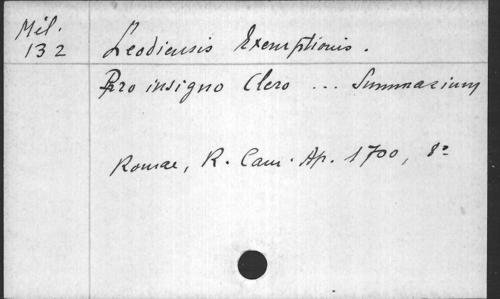 Mél.
132
Leodiensis Exemptionis.
Pro insigno Clero ... Summarium
Romae, R. Cam. Ap. 1700, 8°